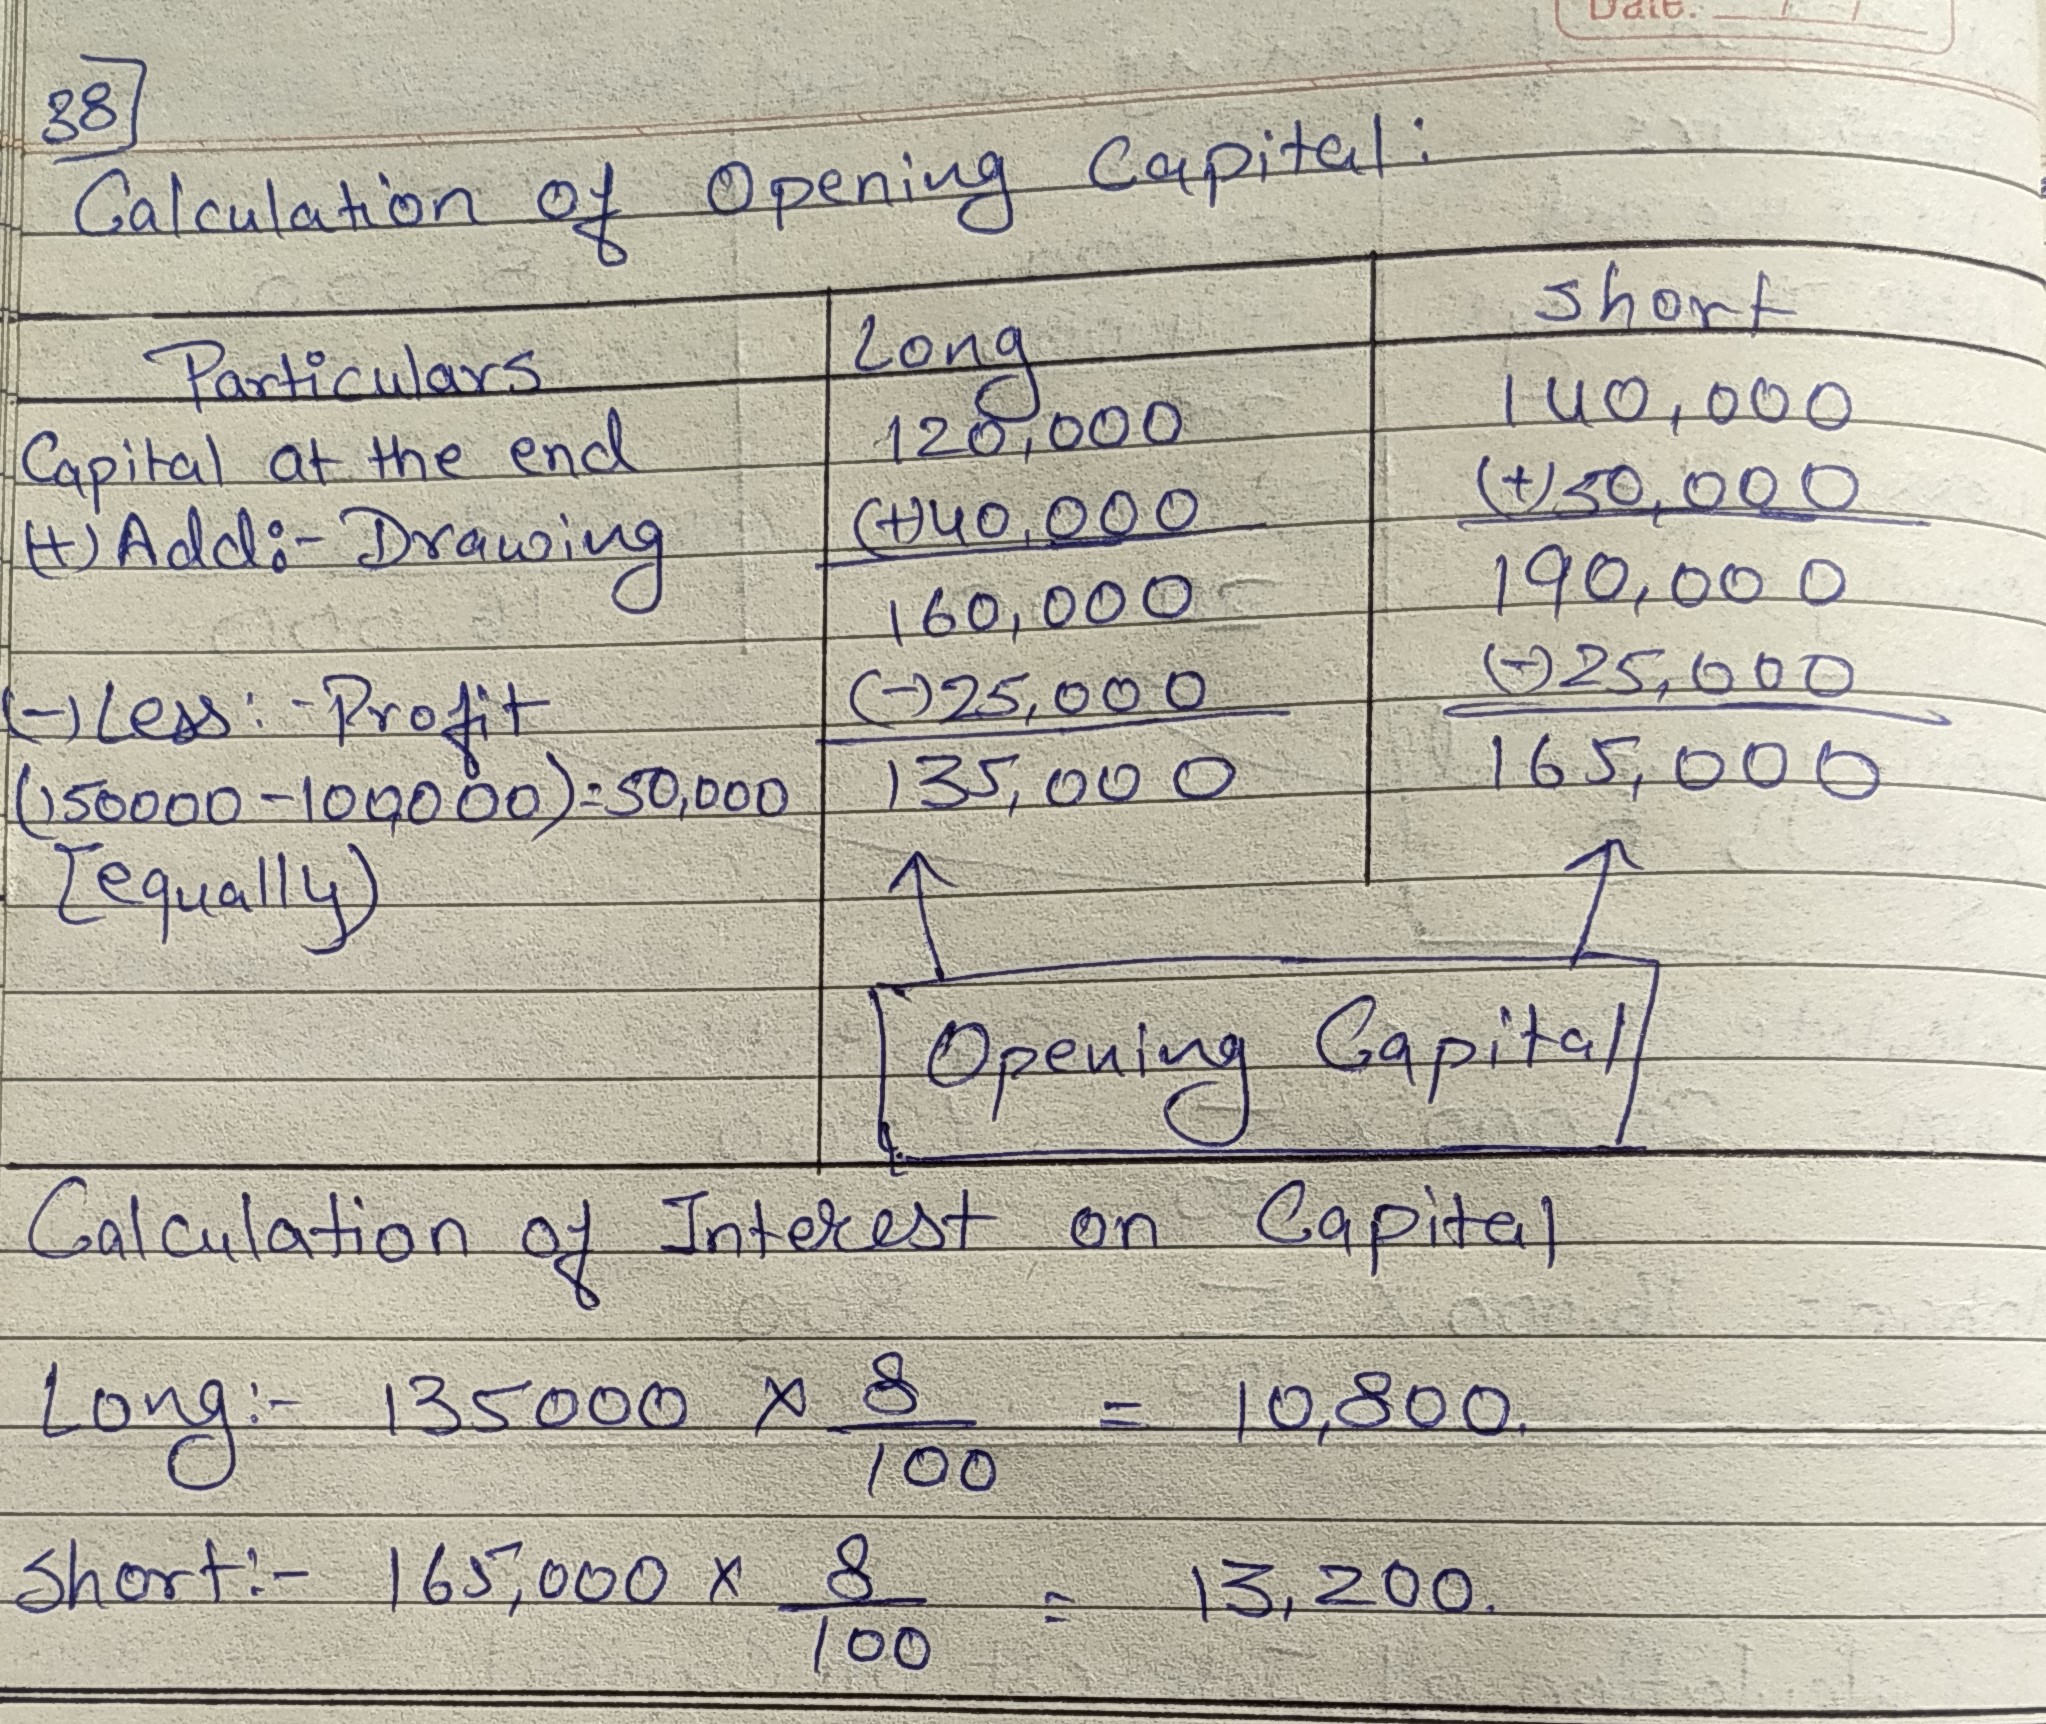 Date: / /
38
Calculation of Opening Capital:
Particulars Long Short
Capital at the end 120,000 140,000
(+) Add:- Drawing (+)40,000 (+)50,000
160,000 190,000
(-) Less:- Profit (-)25,000 (-)25,000
(150000-100000)=50,000 135,000 165,000
[equally)
Opening Capital
Calculation of Interest on Capital
Long:- 135000 × 8/100 = 10,800.
Short:- 165,000 × 8/100 = 13,200.